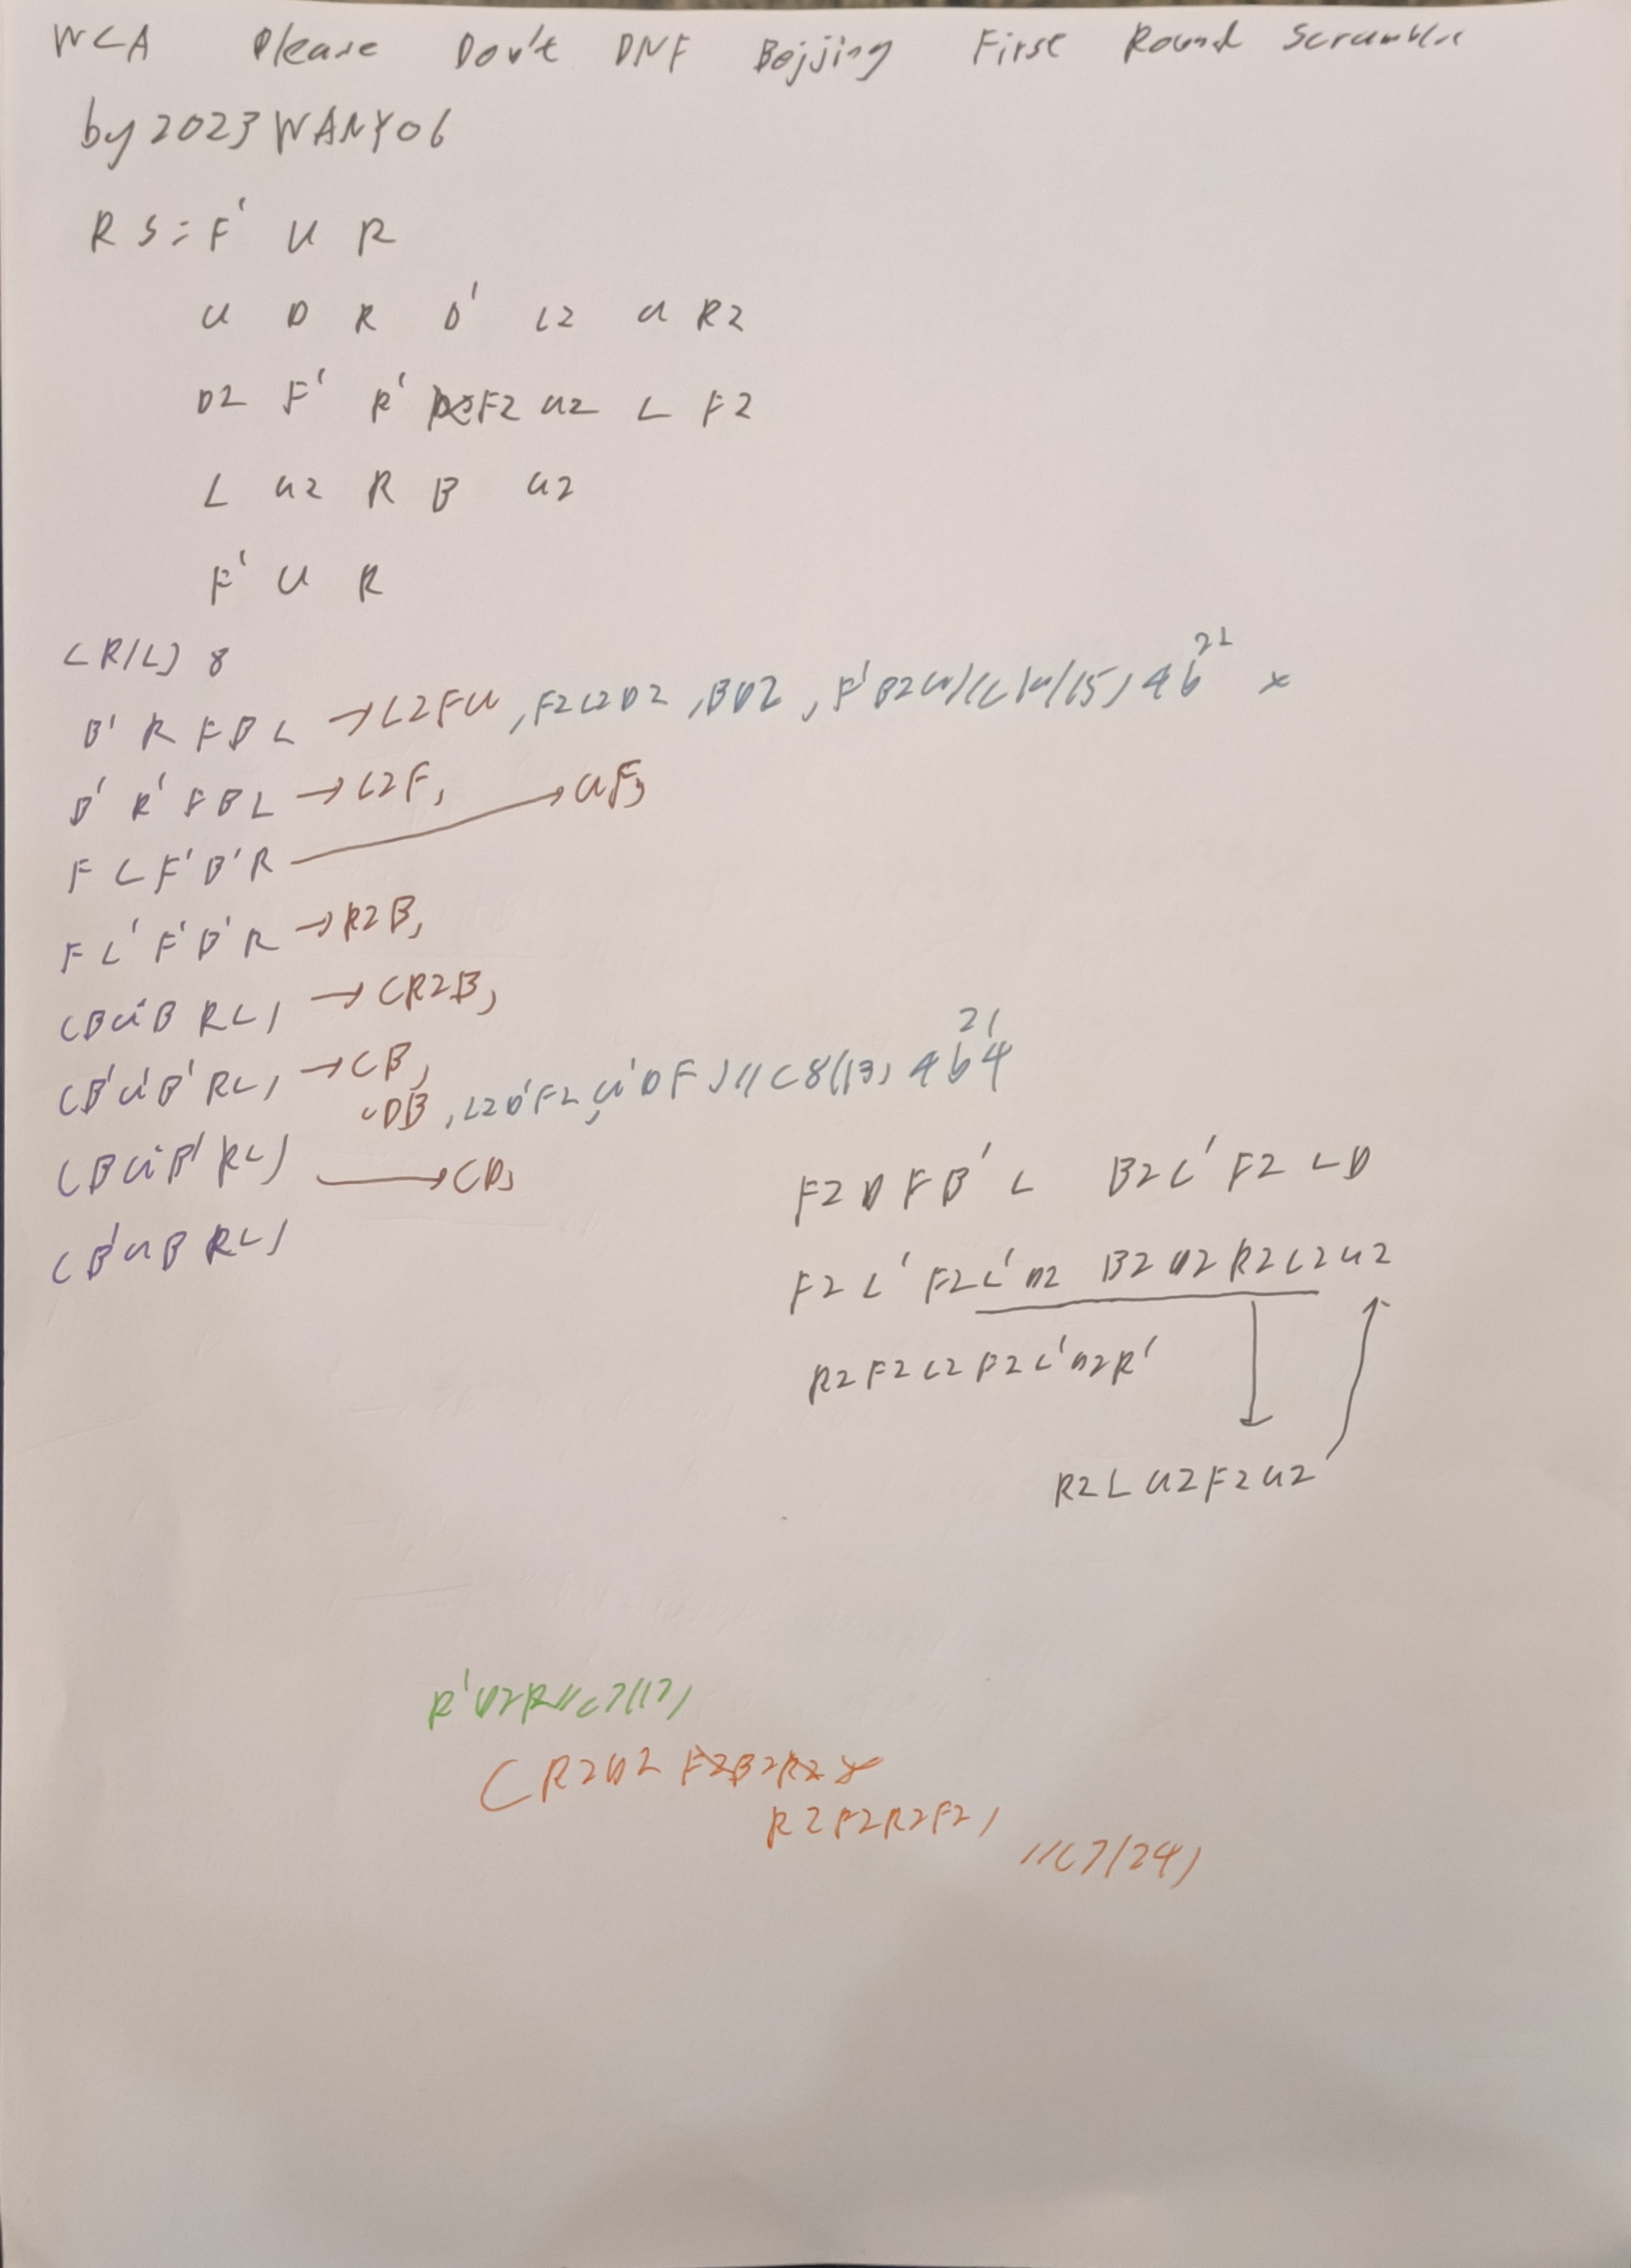 WCA Please Don't DNF Beijjing First Round Scramble
by 2023WANY06
RS: F' U R
U D R D' L2 U R2
D2 F' R' F2 U2 L F2
L U2 R B U2
F' U R
(R/L) 8
B' R F B L → L2FU, F2L2D2, BD2,
21
B' R' F B L → L2F,
F L F' B' R → UF,
F L' F' B' R → R2B,
(BU'B RL) → (R2B,
(B'U'B' RL) → (B,
(DB, L2D'F2, U'DF) //C8(13) 4b4
21
(BU'B' RL) → (D,
(B'UB RL)
F2 D F B' L B2 L' F2 L D
F2 L' F2 L' D2 B2 D2 R2 L2 U2
R2F2L2B2L'D2R'
R2 L U2 F2 U2
R'D2R//C7(17)
(R2D2
R2F2R2F2)
//C7(24)